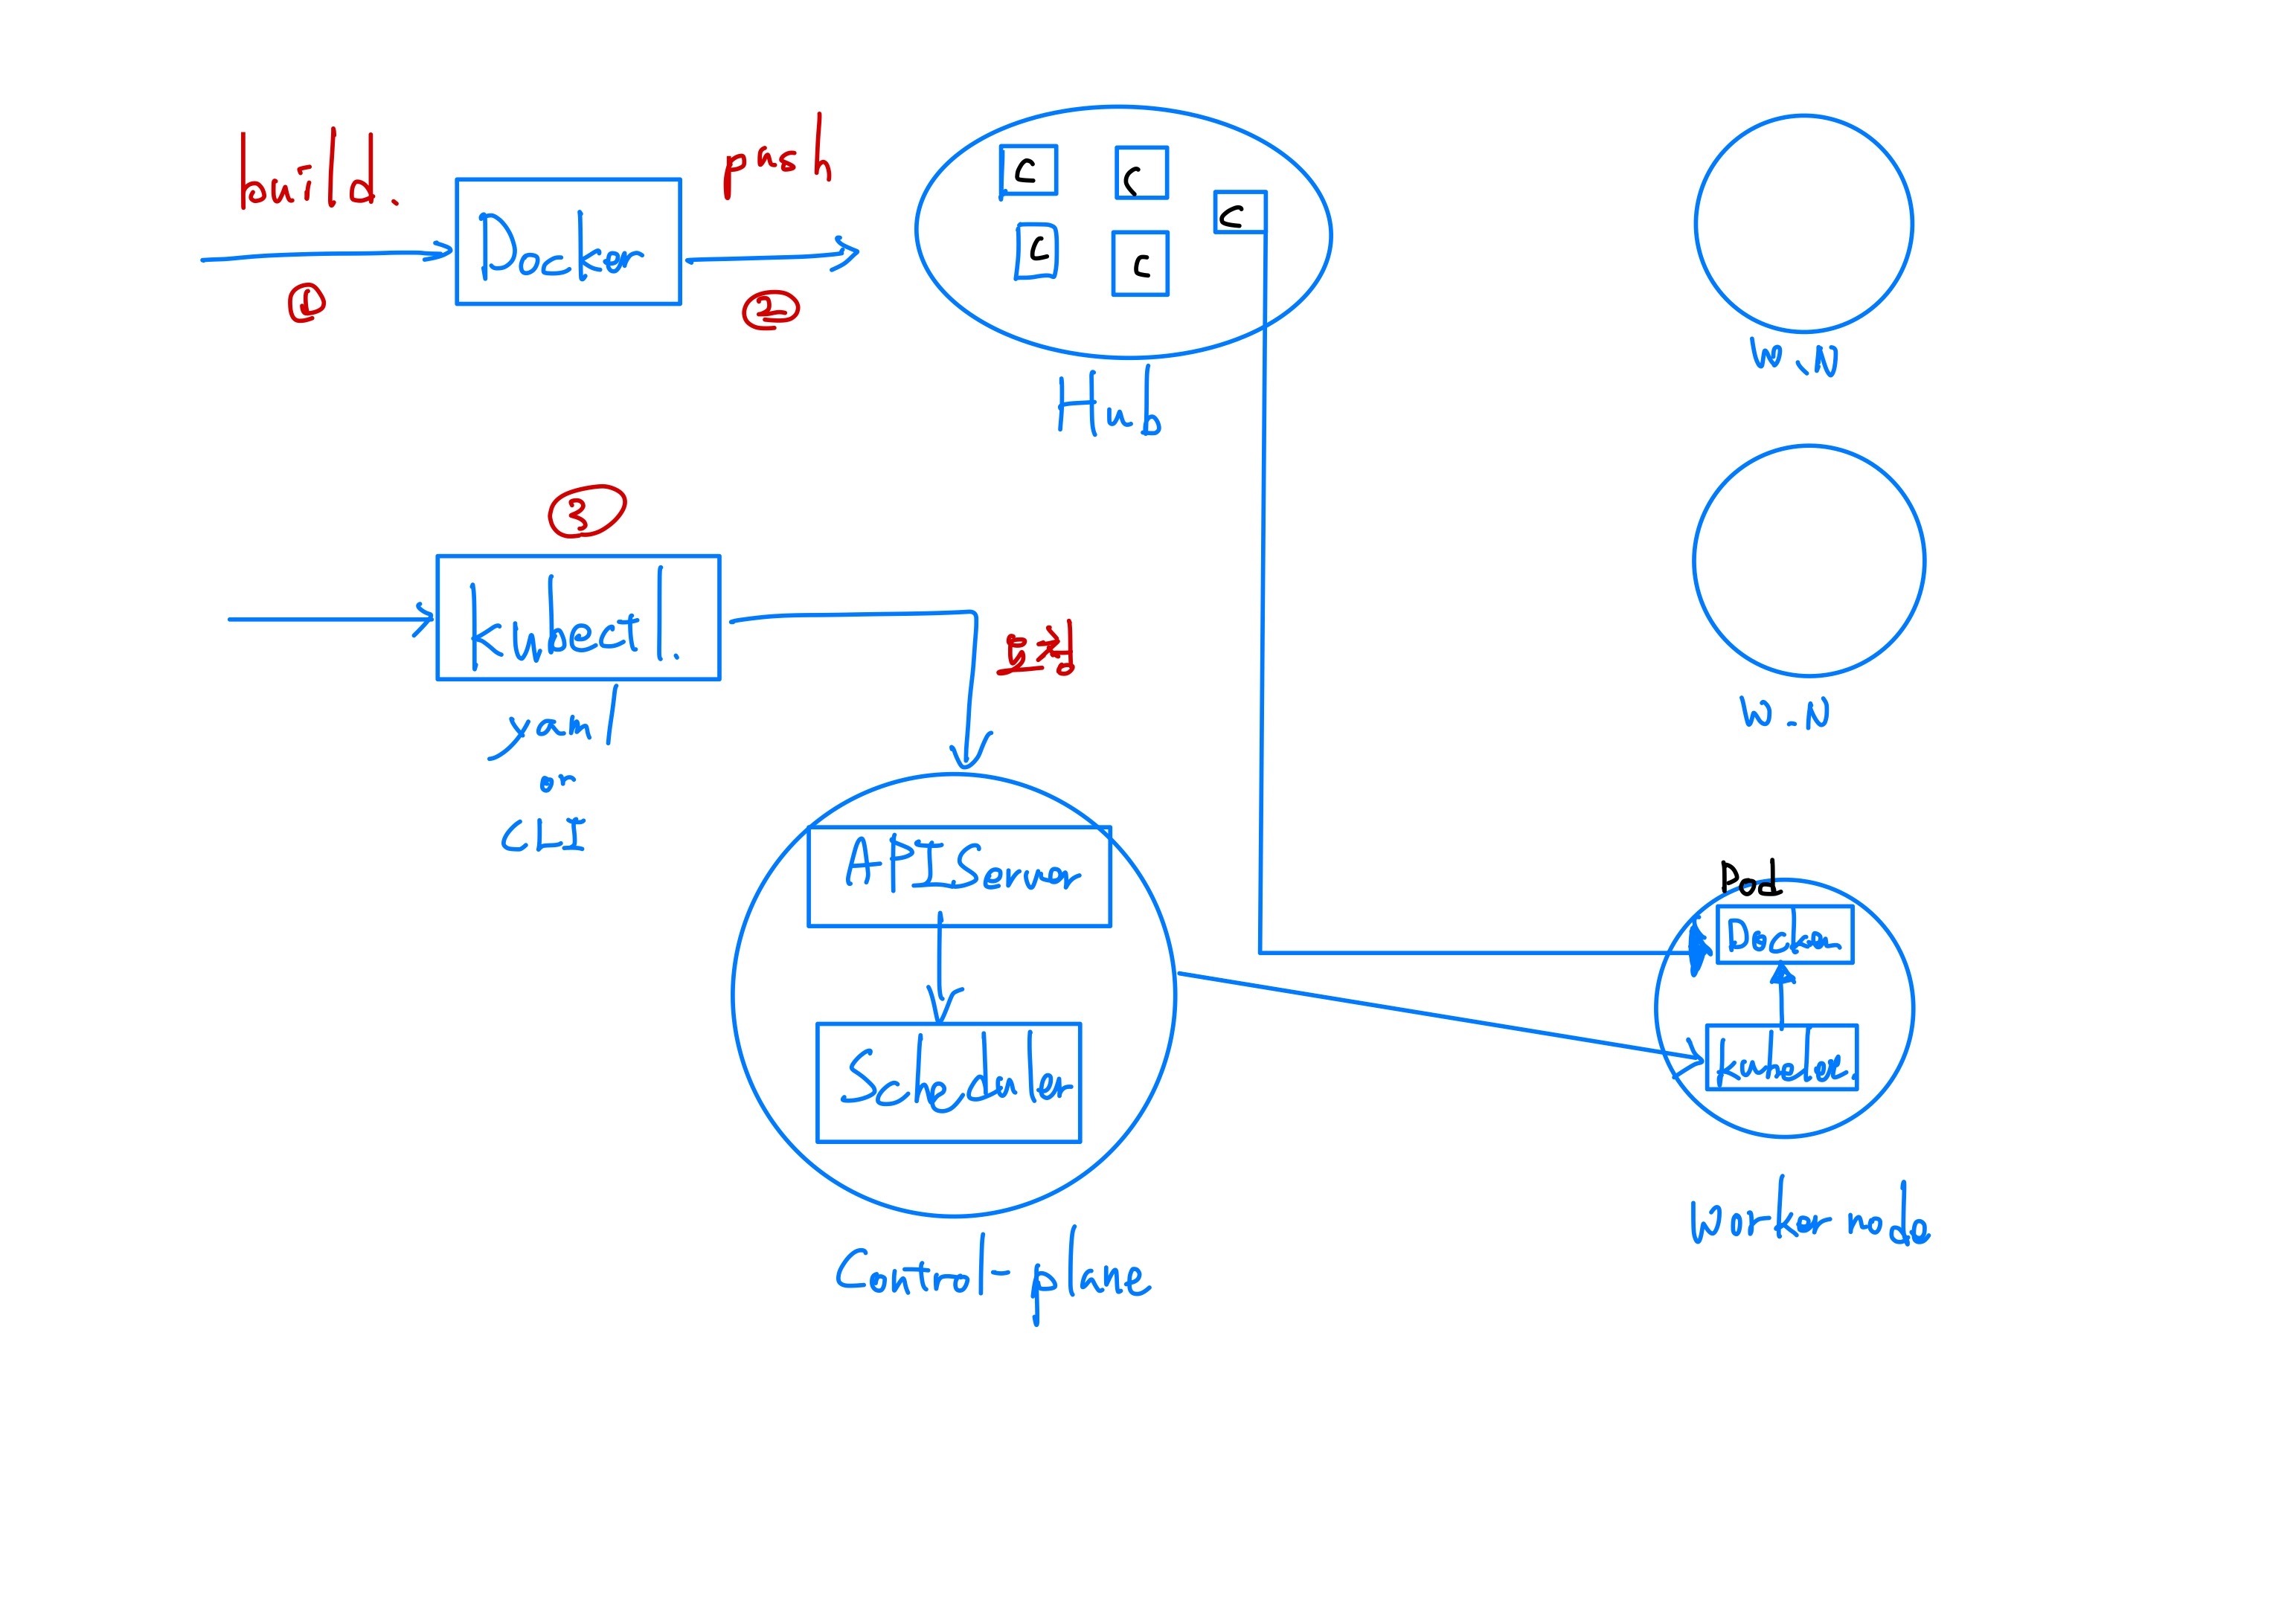 build.
push
Docker
①
②
C
C
C
C
C
Hub
W.N
③
kubectl.
yaml
or
CLI
요청
W.N
API Server
Scheduler
Control-plane
Pod
Docker
kubelet.
Worker node